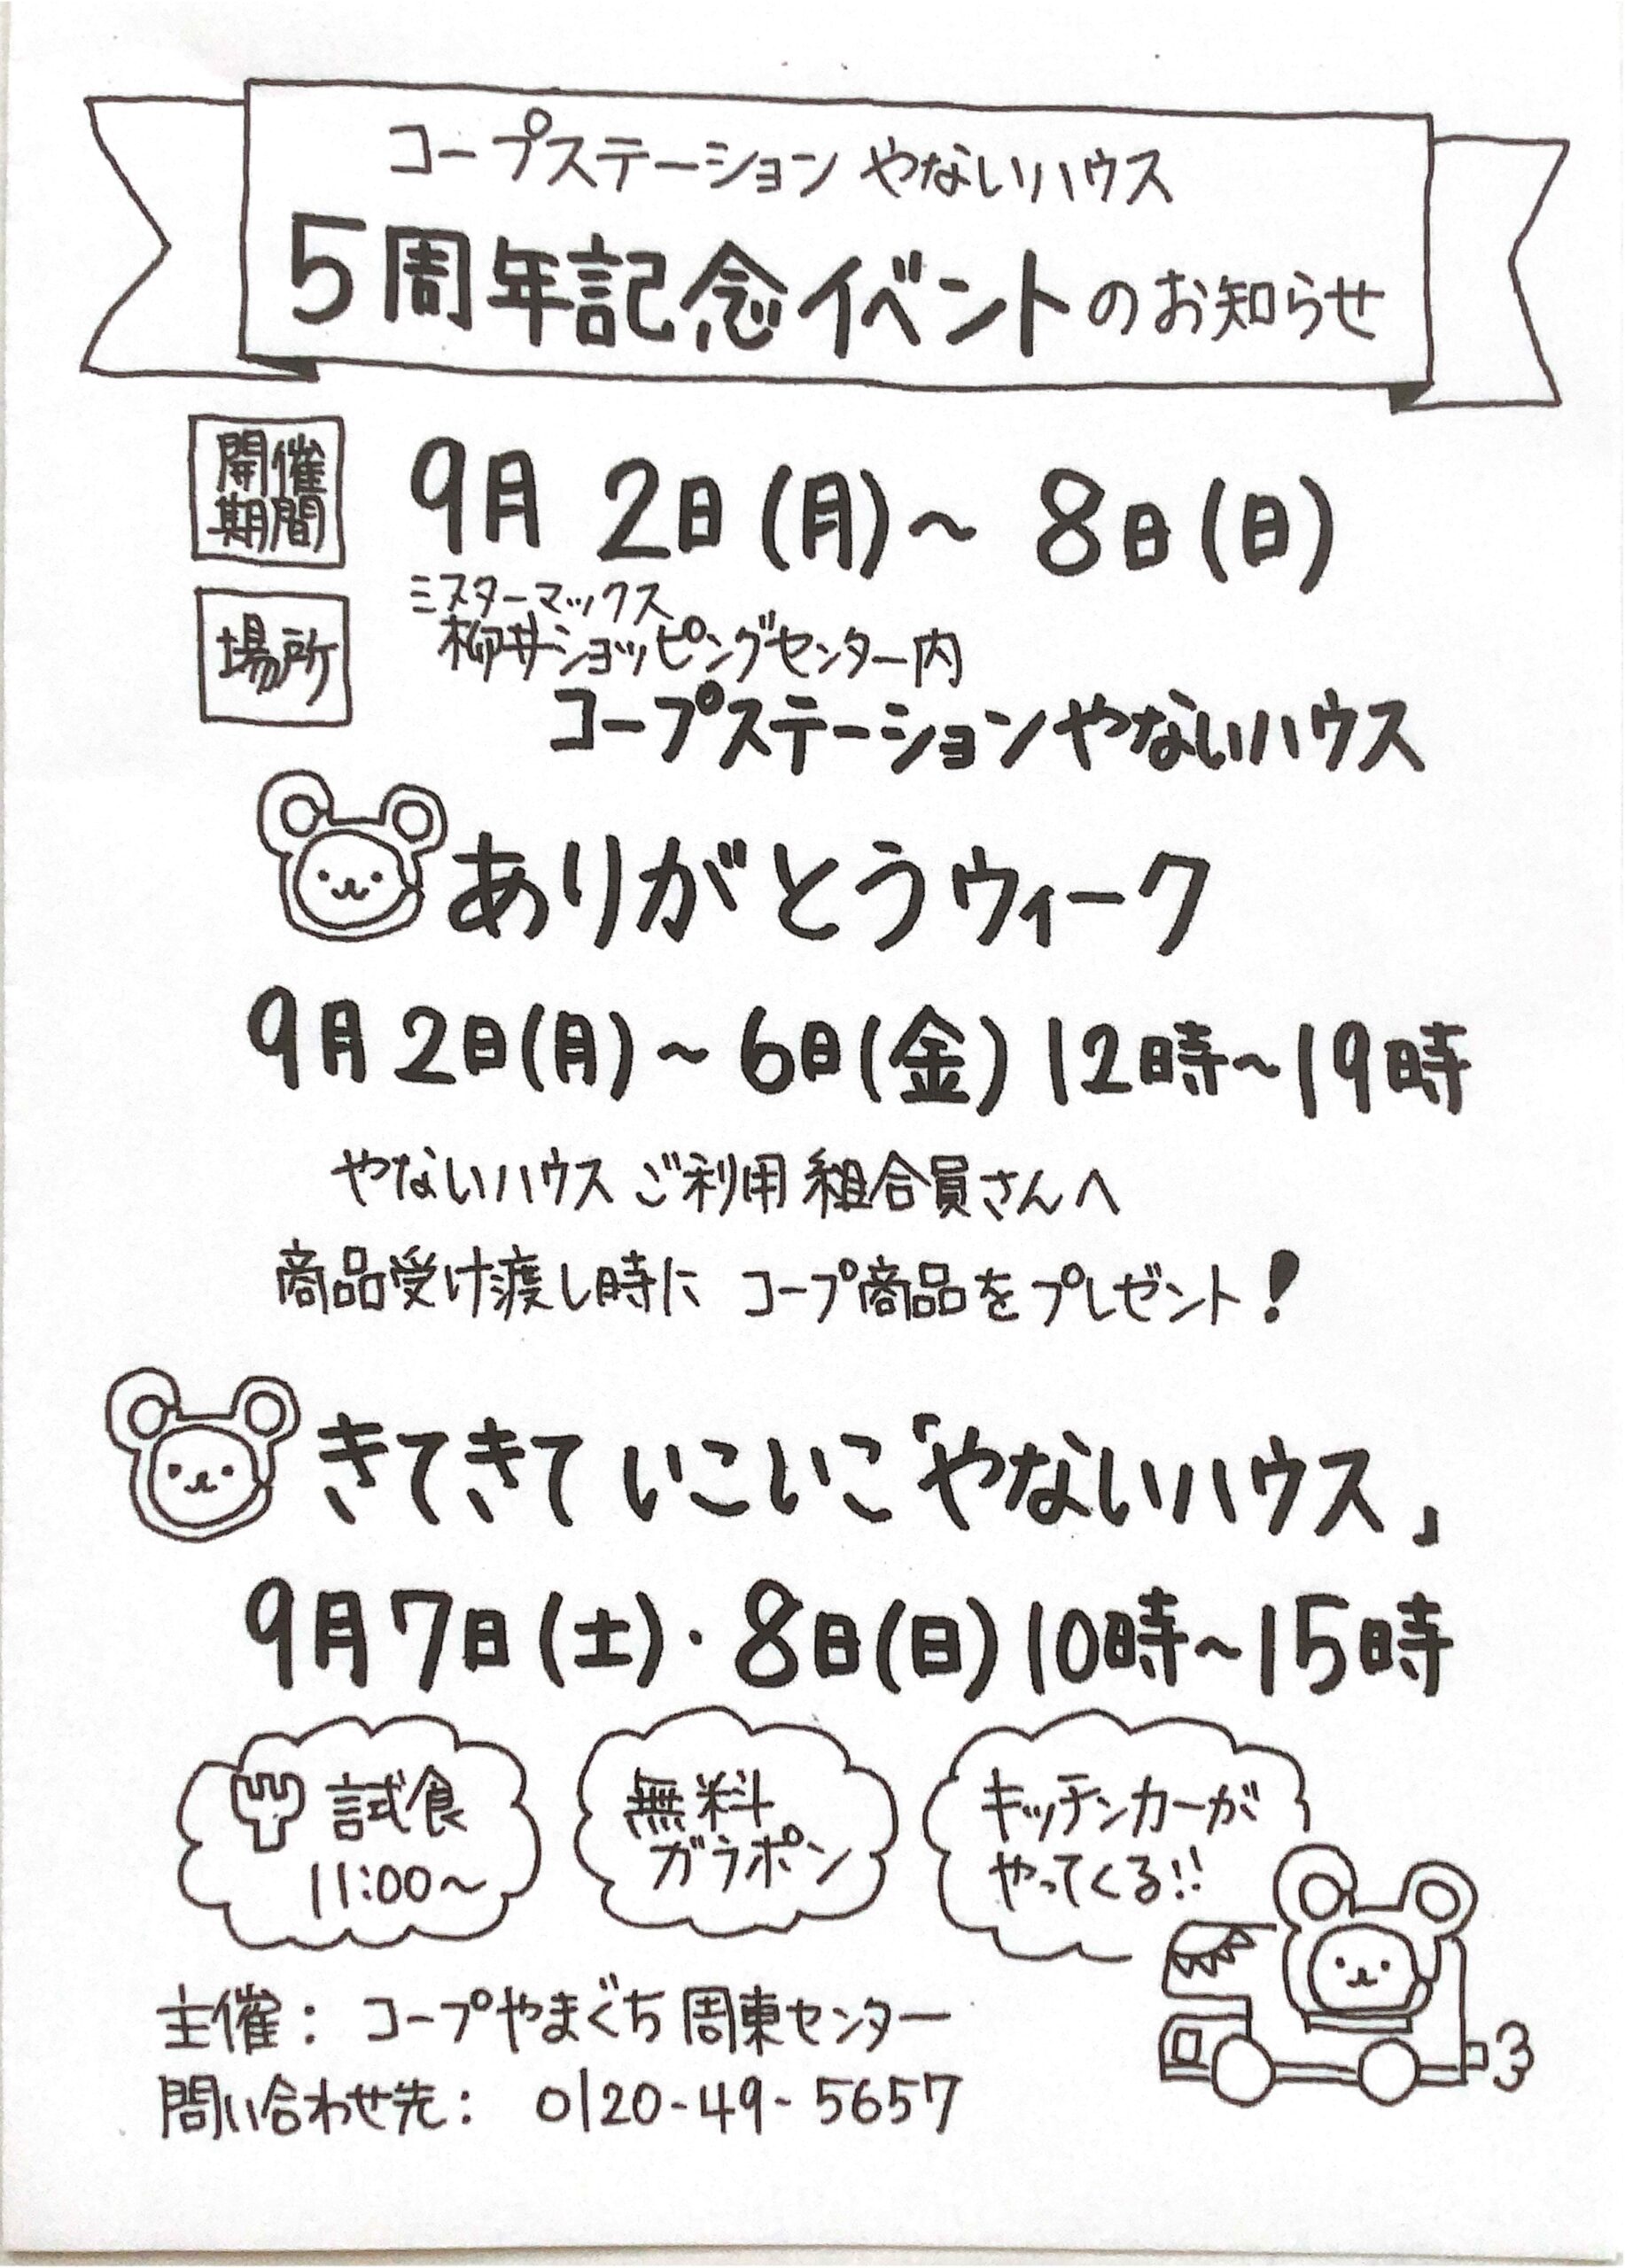 コープステーション やないハウス
5周年記念イベントのお知らせ
開催
期間
9月 2日(月)～ 8日(日)
場所
ミスターマックス
柳井ショッピングセンター内
コープステーションやないハウス
ありがとうウィーク
9月2日(月)～6日(金)12時～19時
やないハウス ご利用 組合員さんへ
商品受け渡し時に コープ商品をプレゼント!
きてきて いこいこ「やないハウス」
9月7日(土)・8日(日)10時～15時
試食
11:00～
無料
ガラポン
キッチンカーが
やってくる!!
主催: コープやまぐち 周東センター
問い合わせ先: 0120-49-5657